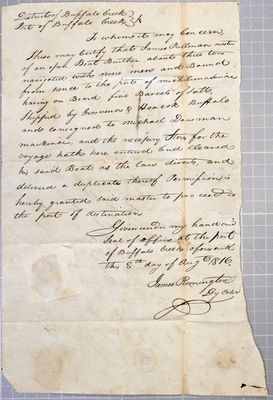 District of Buffalo Creek
Port of Buffalo Creek
To whom it may concern,
These may certify that James Pillman master
of an open Boat Burthen about three tons
navigated with nine men and Bound
from hence to the port of michilimackinac
having on Board five Barrels of Salt,
Shipped by Grosvenor & Heacock Buffalo
and consigned to Michael Dousman
mackinac, and the necessary Stores for the
voyage hath here entered and cleared
his said Boat as the law directs, and
delivered a duplicate thereof Permission is
hereby granted said master to proceed to
the port of destination
Given under my hand and
Seal of office at the port
of Buffalo Creek aforesaid
this 8th day of Aug 1816
James Remington
Dy Coller